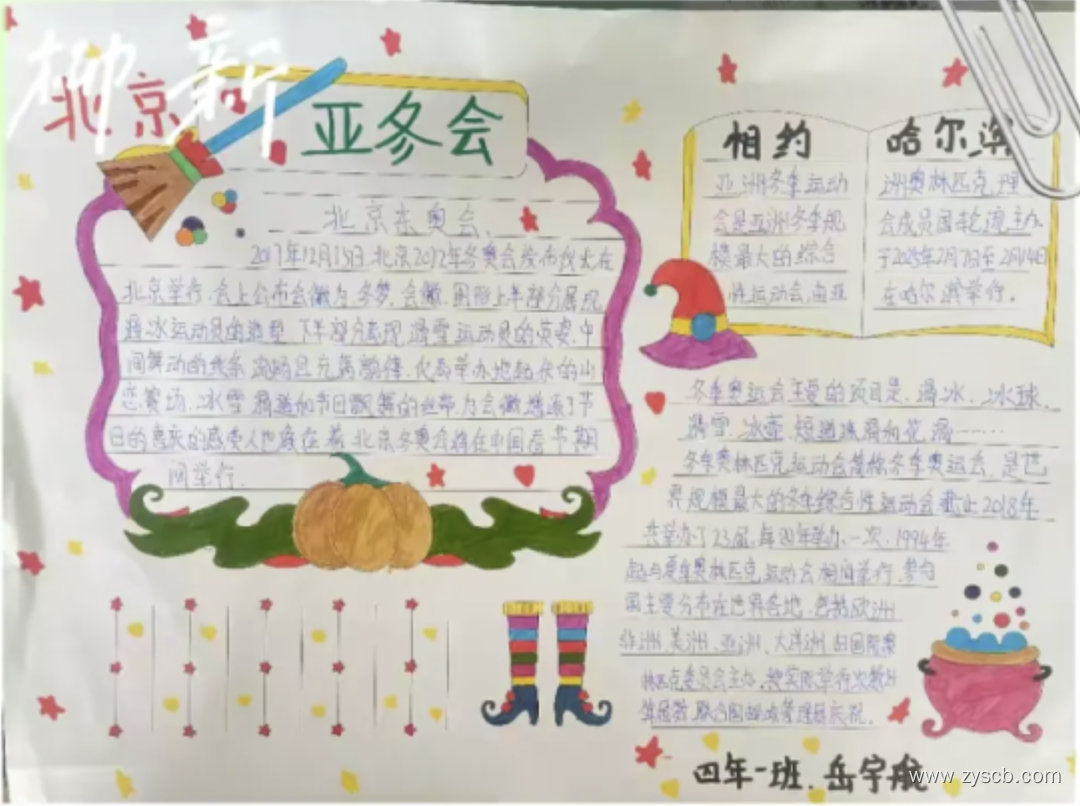 柳新
北京
亚冬会
北京东奥会
2017年12月15日,北京2022年冬奥会发布仪式在
北京举行.会上公布会徽为.冬梦.会徽.图形上半部分展现
滑冰运动员的造型 下半部分表现滑雪运动员的英姿.中
间舞动的线条流畅且充满韵律.代表举办地起伏的山
峦赛场.冰雪滑道和节日飘舞的丝带.为会徽增添了节
日的喜庆的
北京冬奥会将在中国春节期
间举行.
相约
亚洲冬季运动
会是亚洲冬季规
模最大的综合
性运动会,由亚
哈尔滨
洲奥林匹克理
会成员国轮流主办
于2025年2月7日至2月14日
在哈尔滨举行。
冬季奥运会主要的项目是.滑冰.冰球.
滑雪.冰壶.短道速滑和花滑……
冬季奥林匹克运动会简称冬季奥运会.是世
界规模最大的冬季综合性运动会截止2018年
共举办了23届.每四年举办一次.1994年
起与夏季奥林匹克运动会相间举行.参与
国主要分布在世界各地.包括欧洲
非洲、美洲、亚洲、大洋洲.由国际奥
林匹克委员会主办.按实际举行次数计
算届数.
四年一班.岳宇航
www.zyscb.com